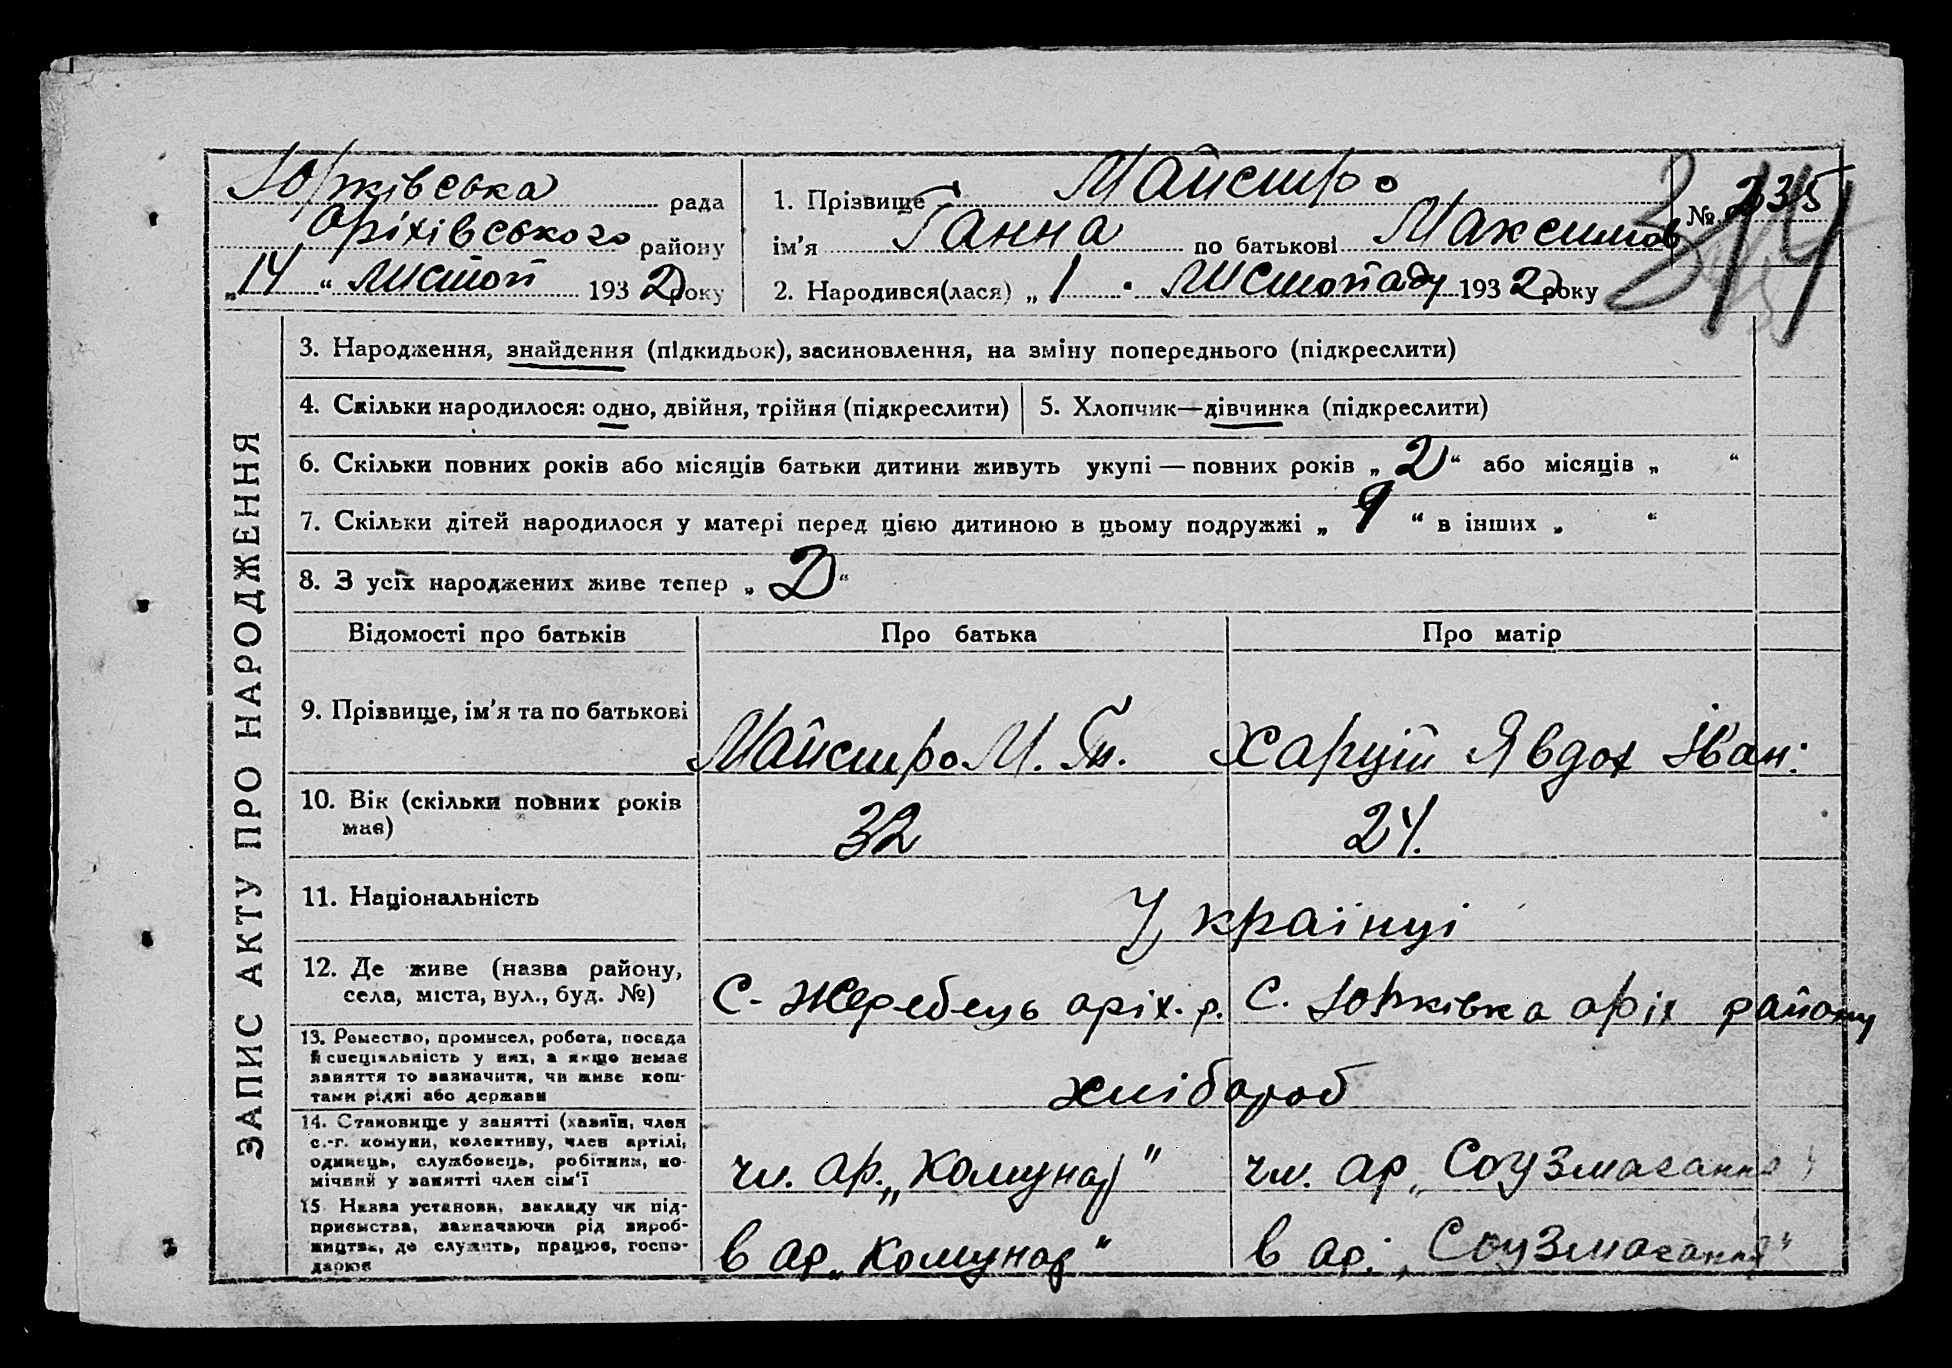 Юрківська рада
Оріхівського району
„14“ листоп 1932 року
1. Прізвище Майстро
ім'я Ганна по батькові Максимов
№ 235
344
2. Народився(лася) „1 " листопаду 1932 року
ЗАПИС АКТУ ПРО НАРОДЖЕННЯ
3. Народження, знайдення (підкидьок), засиновлення, на зміну попереднього (підкреслити)
4. Скільки народилося: одно, двійня, трійня (підкреслити)
5. Хлопчик—дівчинка (підкреслити)
6. Скільки повних років або місяців батьки дитини живуть укупі — повних років „2“ або місяців „ “
7. Скільки дітей народилося у матері перед цією дитиною в цьому подружжі „1“ в інших „ “
8. З усіх народжених живе тепер „2“
Відомості про батьків Про батька Про матір
9. Прізвище, ім'я та по батькові
Майстро М. Харцій Явдох Іван.
10. Вік (скільки повних років
має)
32 24.
11. Національність
Українці
12. Де живе (назва району,
села, міста, вул., буд. №)
С. Жеребець оріх. р. С. Юрківка оріх району
13. Ремество, промисел, робота, посада
й спеціяльність у них, а якщо немає
заняття то зазначити, чи живе кош-
тами рідні або держави
хлібороб
14. Становище у занятті (хазяїн, член
с.-г. комуни, колективу, член артілі,
одинець, службовець, робітник, по-
мічний у занятті член сім'ї
чл. ар. „Комунар" чл. ар „Соузмагання"
15 Назва установи, закладу чи під-
приємства, зазначаючи рід вироб-
ництва, де служить, працює, госпо-
дарює
в ар „Комунар" в ар. „Соузмагання"